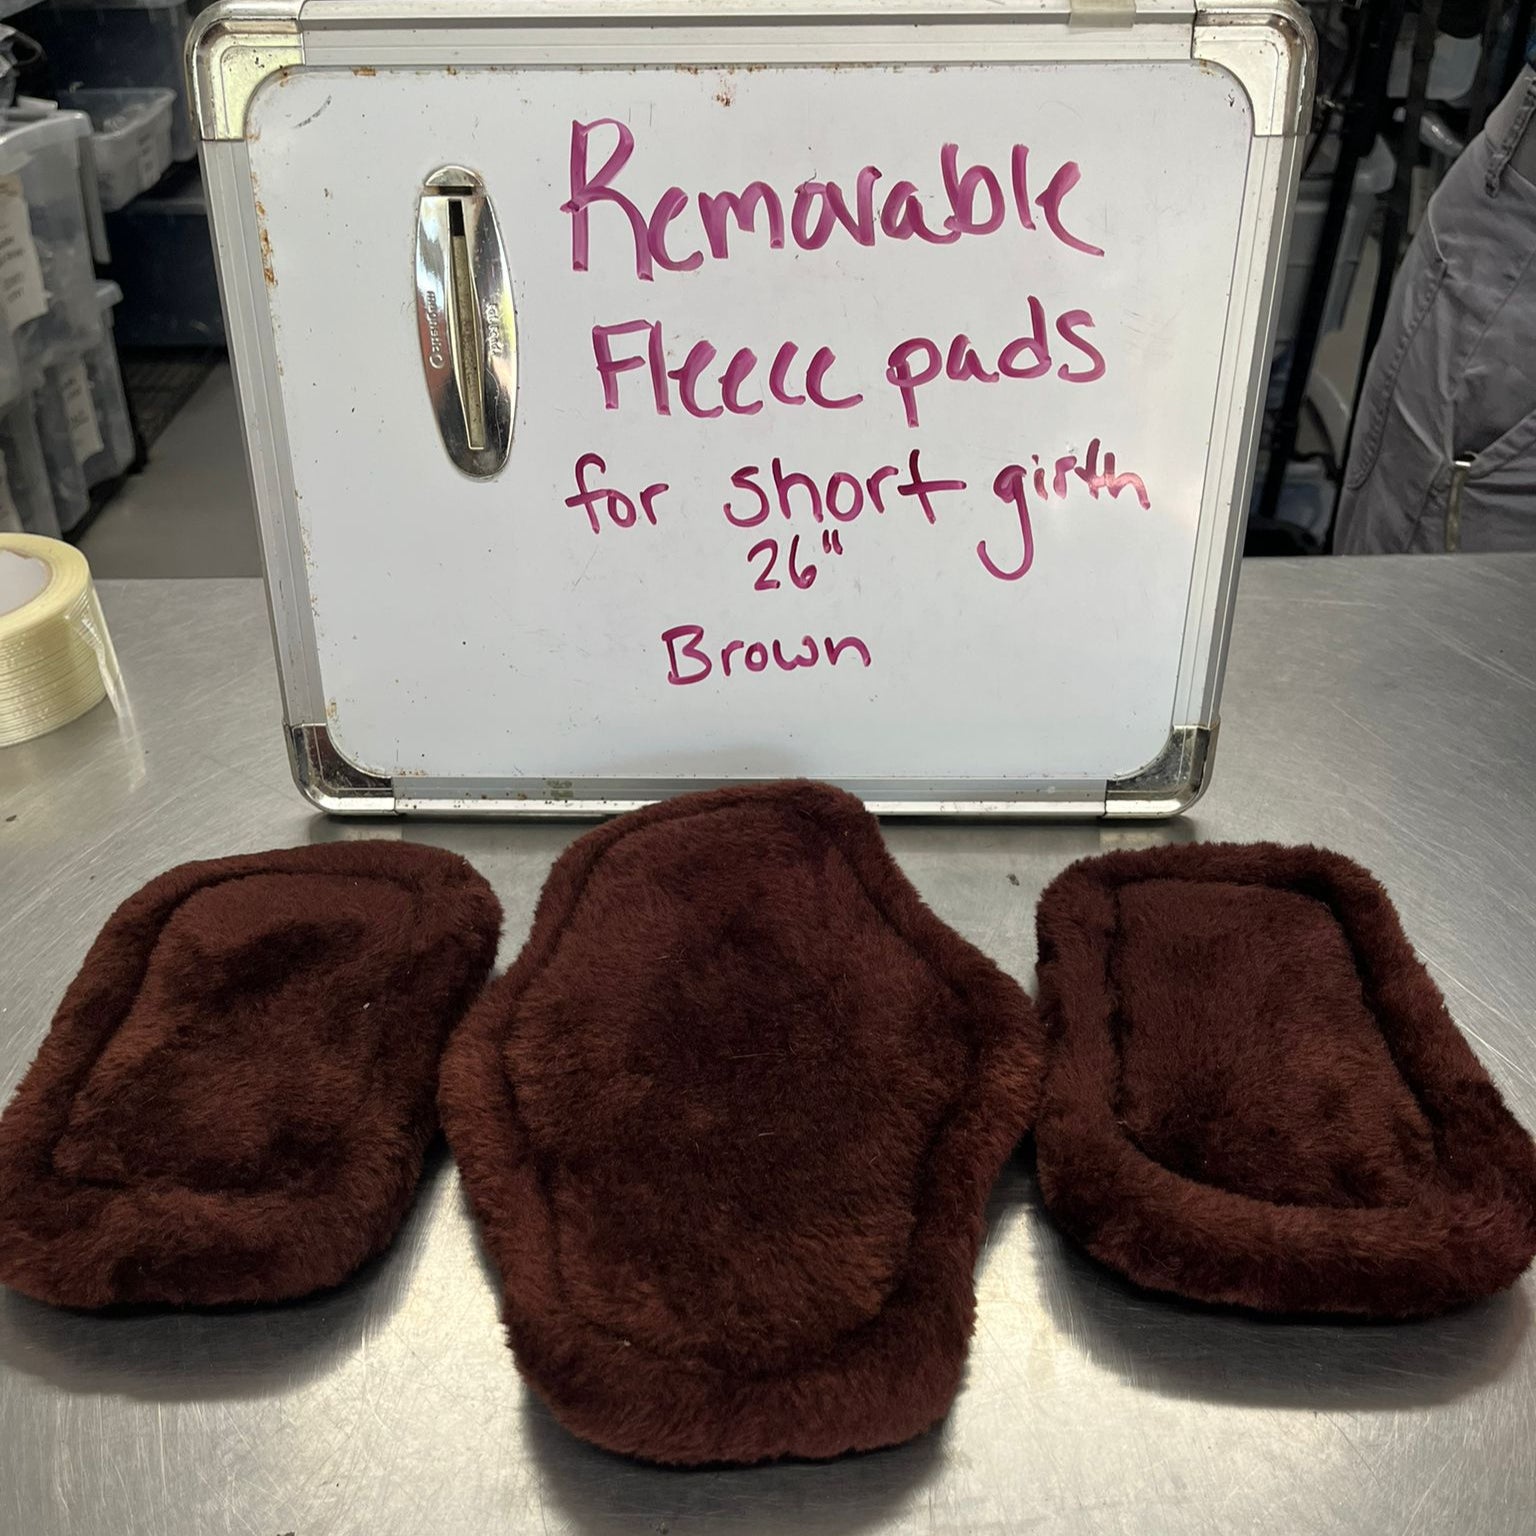 Removable
Fleece pads
for short girth
26"
Brown